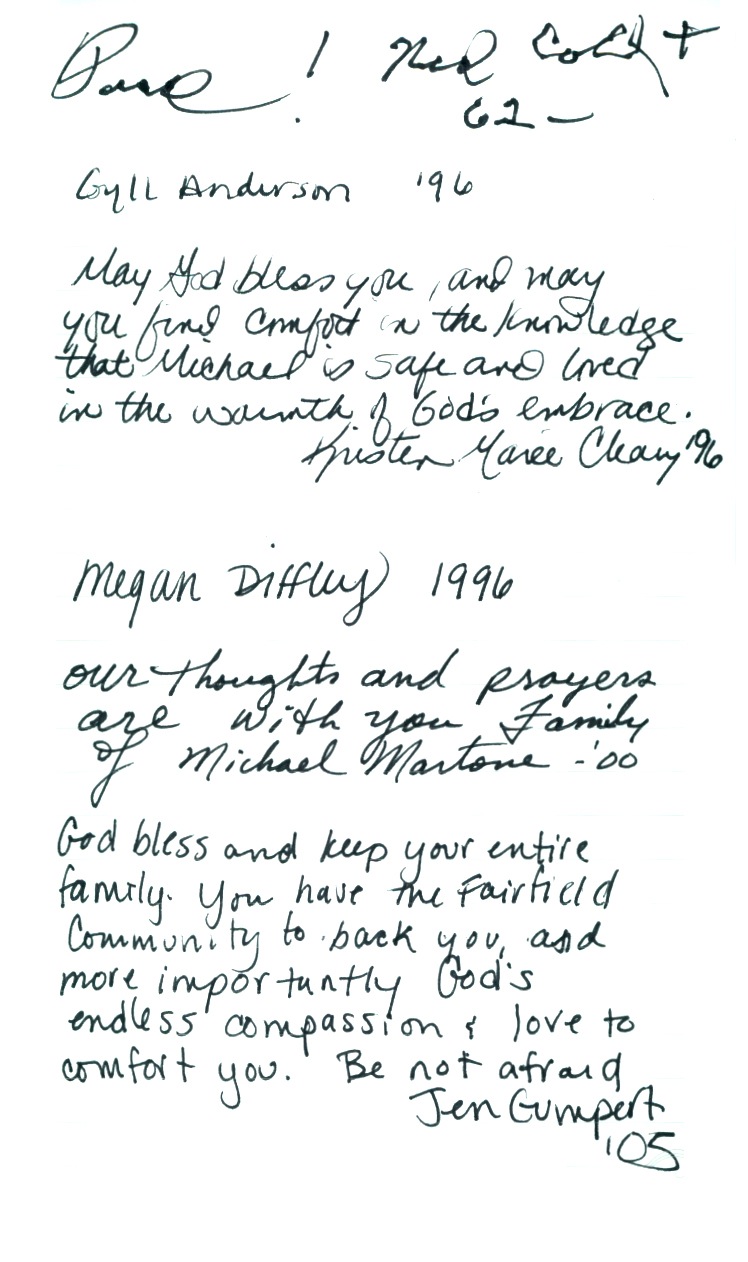 Peace! Ned
62 –
Gyll Anderson '96
May God bless you, and may
you find comfort in the knowledge
that Michael is safe and loved
in the warmth of God's embrace.
Kristen Maree Cleary '96
Megan Diffley 1996
our thoughts and prayers
are with you Family
of Michael Martone - '00
God bless and keep your entire
family. You have the Fairfield
Community to back you, and
more importantly God's
endless compassion & love to
comfort you. Be not afraid
Jen Gumpert
'05